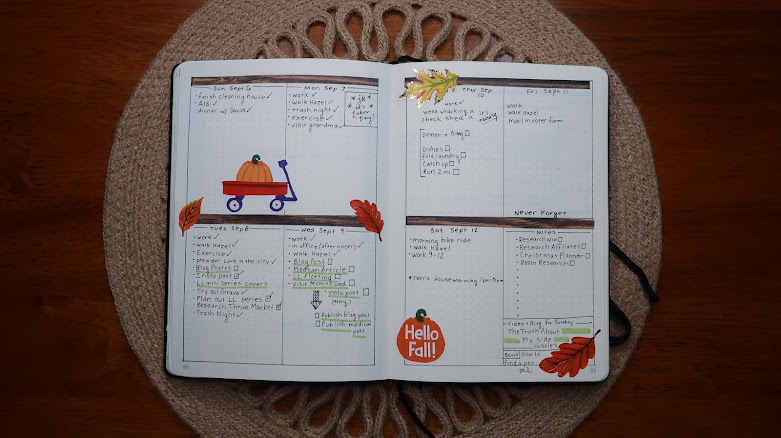 Sun Sept 6
finish cleaning house ✓
Aldi ✓
dinner w/ David ✓
Mon Sept 7
work ✓
walk Hazel ✓
trash night ✓
exercise ✓
visit grandma ✓
Labor
Day!
Tues Sept 8
work ✓
walk Hazel ✓
Exercise ✓
preorder Lore in the city ✓
Blog Photos
Insta post
LL mini series covers
Try out Strava ✓
Plan out LL series
Research Thrive Market
Trash Night ✓
Wed Sept 9
work ✓
in office (afternoon) ✓
walk Hazel ✓
Blog Post
Medium Article
LL Plotting
visit Mom & Dad
insta post
(story)
Publish blog post
Publish medium
post
Thur Sep
10
work ✓
weed whacking x
check shed x
it's
raining
Dinner @ 5
Dishes
fold laundry
Catch up
Run 2 mi
Fri Sept 11
work
walk Hazel
mail in voter form
Never Forget
Sat Sept 12
morning bike ride
walk Hazel
work 9-12
Housewarming 1pm-5pm
Hello
Fall!
Notes
Research Wix
Research Affiliates
Christmas Planner
Resin Research
Video + Blog for Sunday
The Truth About
My side
Hustles
How to
find a pen
pal
84
85